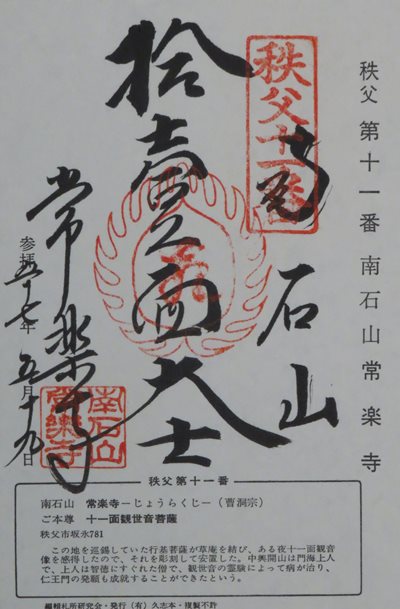 秩父 第十一番 南石山常楽寺
秩父十一番
南石山
拾壹面大士
常楽寺
参拝五十七年 五月十九日
南石山
常樂寺
秩父第十一番
南石山　常楽寺―じょうらくじ―(曹洞宗)
ご本尊　十一面観世音菩薩
秩父市坂氷781
この地を巡錫していた行基菩薩が草庵を結び、ある夜十一面観音
像を感得したので、それを彫刻して安置した。中興開山は門海上人
で、上人は智徳にすぐれた僧で、観世音の霊験によって病が治り、
仁王門の発願も成就することができたという。
編輯札所研究会・発行(有)久志本・複製不許